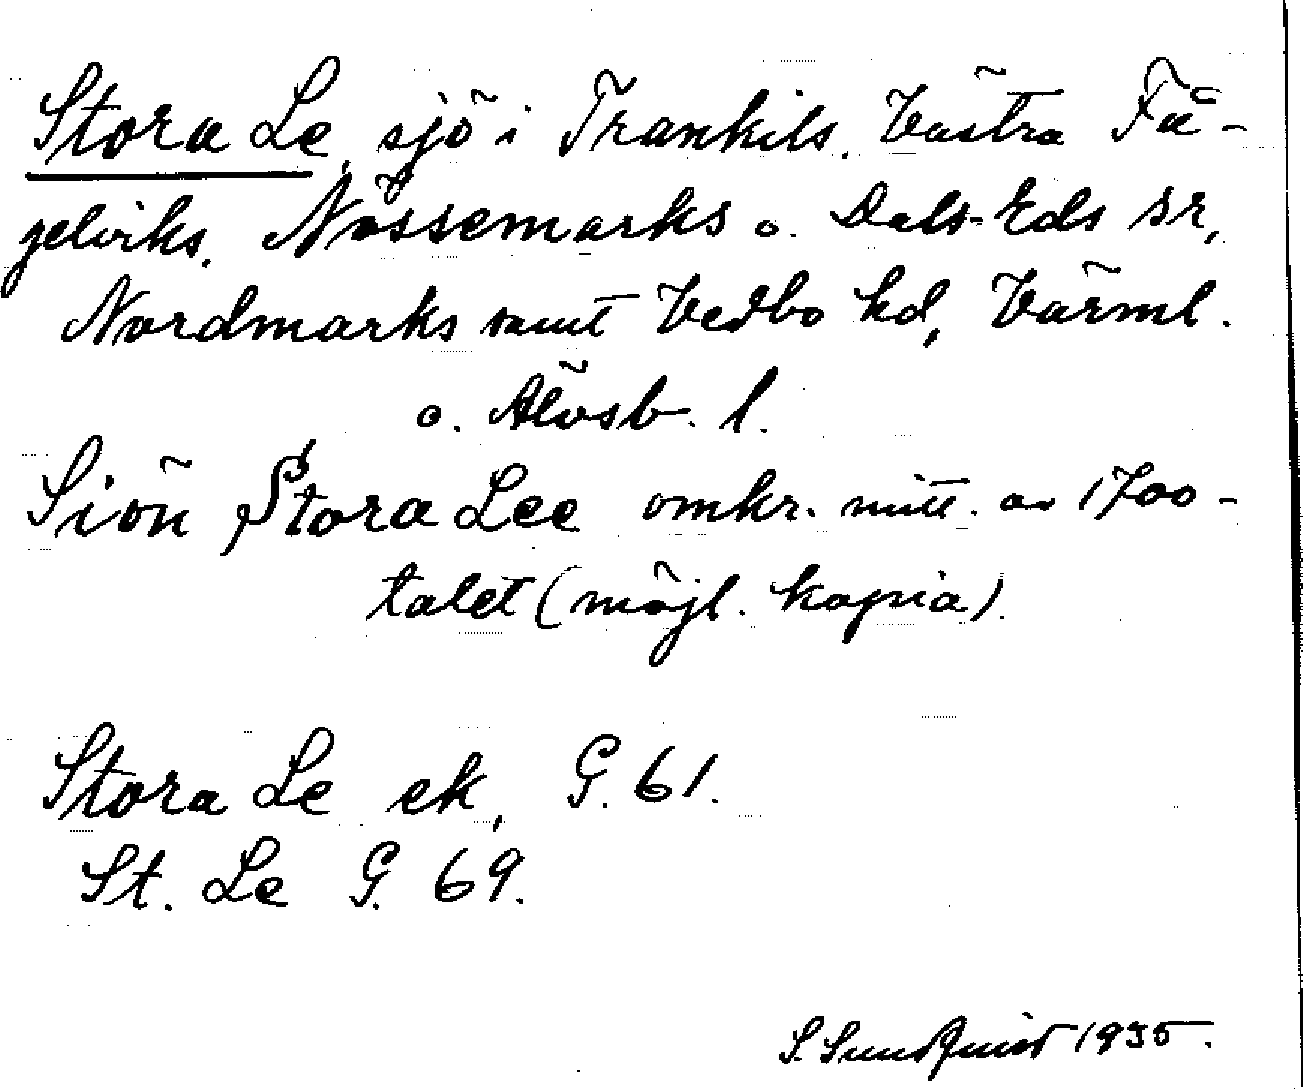 Stora Le, sjö i Trankils, Västra Få-
gelviks, Nössemarks o. Dals-Eds sr,
Nordmarks samt Vedbo hd, Värml.
o. Älvsb. l.
Siön Stora Lee omkr. mitt. av 1700-
talet (möjl. kopia)
Stora Le ek, G. 61.
St. Le G. 69.
S. Sundquist 1935.